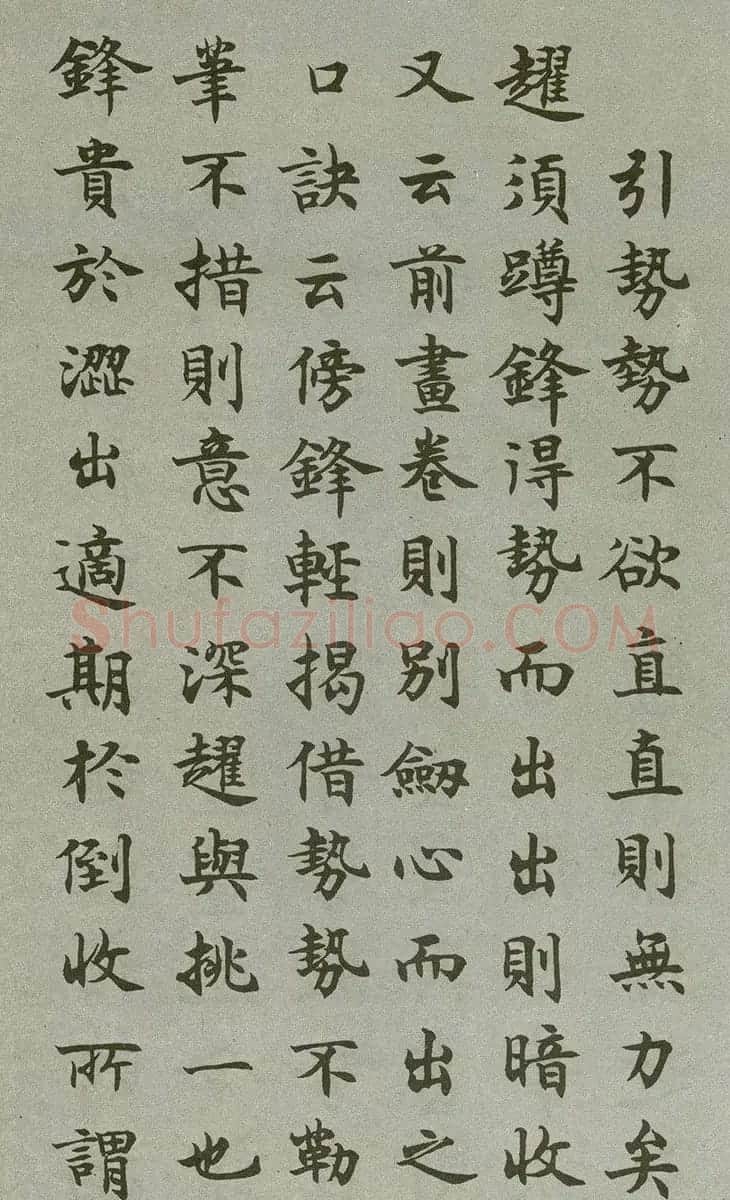 引勢勢不欲直直則無力矣
趯須蹲鋒得勢而出出則暗收
又云前畫卷則別劔心而出之
口訣云傍鋒輕揭借勢勢不勒
筆不措則意不深趯與挑一也
鋒貴於澀出適期於倒收所謂
Shufaziliao.COM